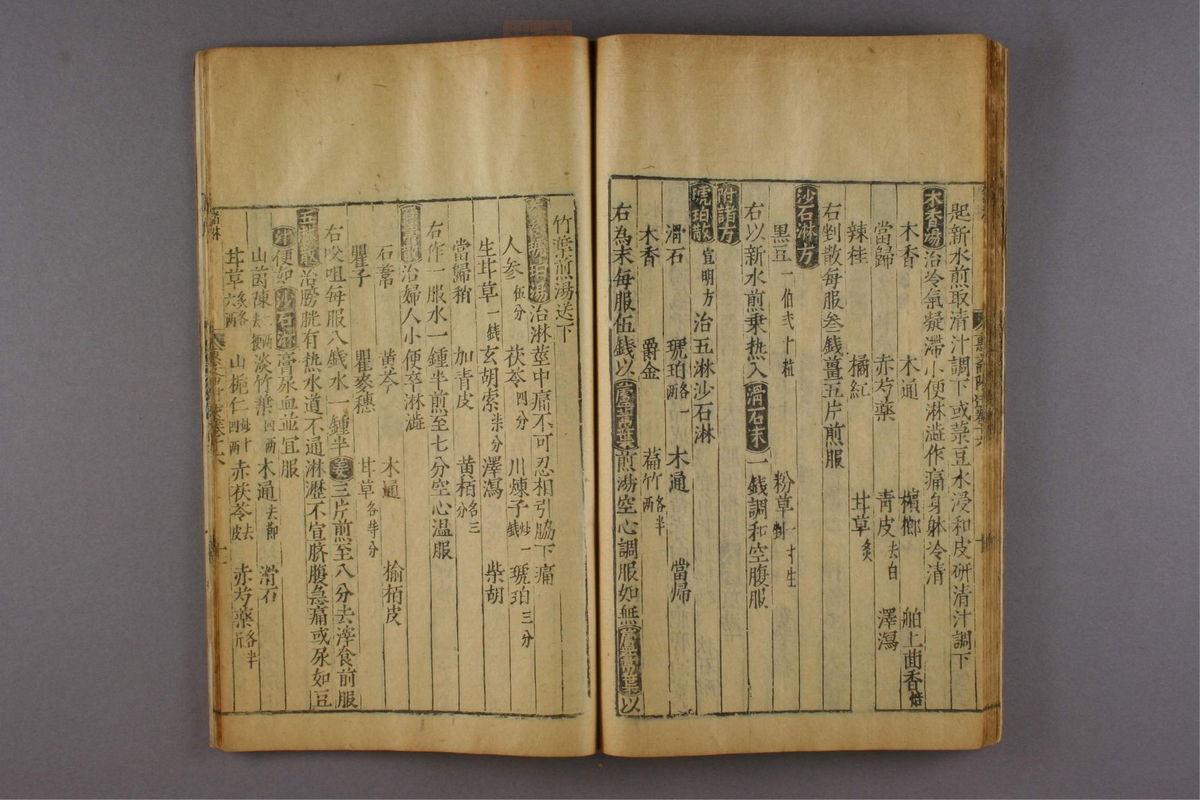 起新水煎取清汁調下或菉豆水浸和皮研清汁調下
木香湯治冷氣凝滯小便淋澁作痛身躰冷清
木香 木通 檳榔 舶上茴香焙
當歸 赤芍藥 青皮去白 澤瀉
辣桂 橘紅 甘草炙
右剉散每服叁錢薑五片煎服
沙石淋方
黑豆一伯弍十粒 粉草 寸生
右以新水煎乗热入滑石末一錢調和空腹服
附諸方
琥珀散宣明方治五淋沙石淋
滑石 琥珀各一两 木通 當歸
木香 爵金 萹竹各半两
右為末每服伍錢以 葉煎湯空心調服如無 葉以
竹葉煎湯送下
湯治淋莖中痛不可忍相引脇下痛
人參伍分 茯苓四分 川煉子 一錢 琥珀三分
生甘草一錢 玄胡索柒分 澤瀉 柴胡
當歸稍 加青皮 黄栢各三分
右作一服水一鍾半煎至七分空心温服
治婦人小便卒淋澁
石葦 黄芩 木通 榆栢皮
瞿子 瞿麥穗 甘草各等分
右㕮咀每服八錢水一鍾半姜三片煎至八分去滓食前服
五淋散治膀胱有热水道不通淋瀝不宣臍腹急痛或尿如豆
汁便如沙石淋膏尿血並宜服
山茵陳去梗 淡竹葉四两 木通去節 滑石
甘草炙各六两 山梔仁 十四两 赤茯苓去皮 赤芍藥各半斤